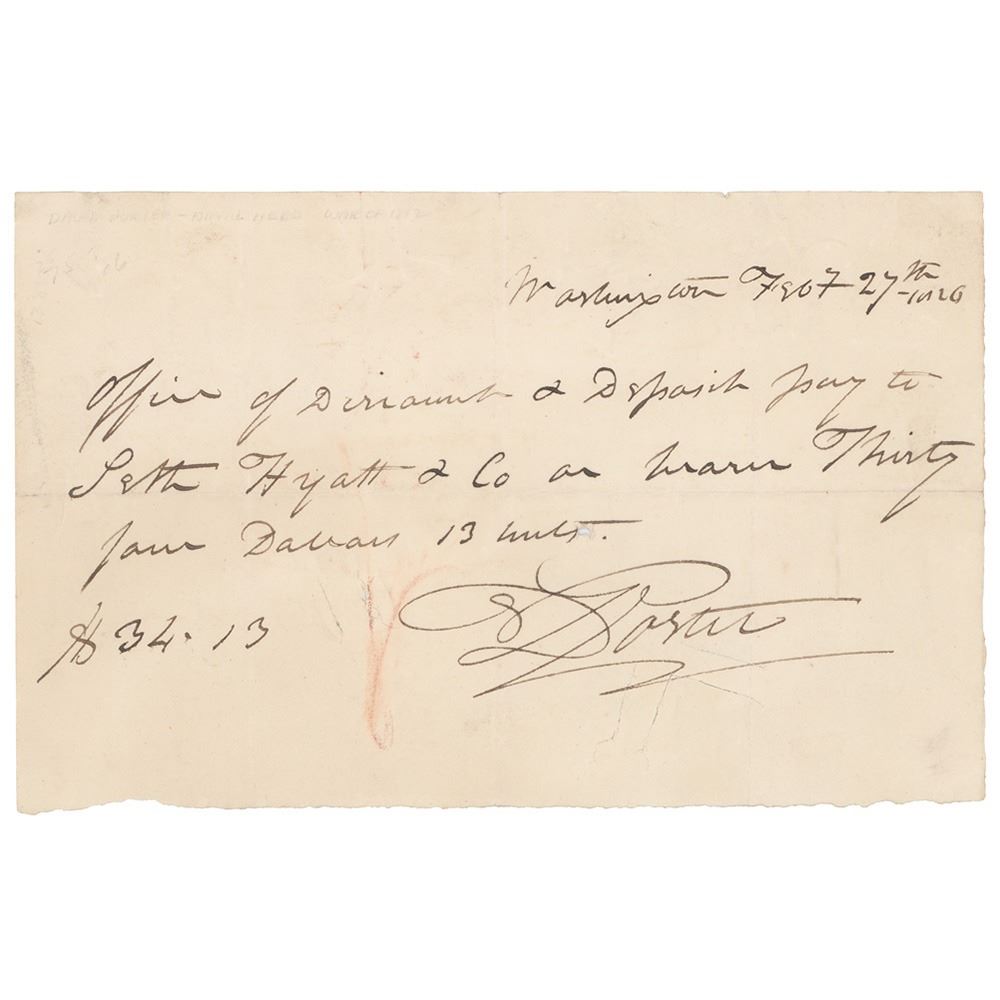 DAVID PORTER - NAVAL HERO WAR OF 1812
Washington Feby 27th 1820
Office of Discount & Deposit pay to
Seth Hyatt & Co or bearer Thirty
four Dollars 13 cents.
$34.13
D Porter